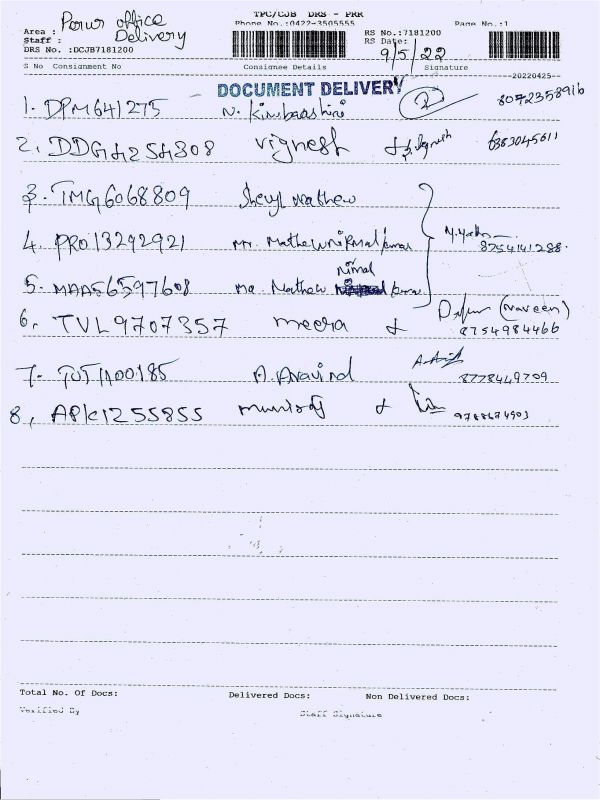 TPC/CJB DRS - PRR
Phone No.:0422-3505555 Page No.:1
Area : Porur office
Staff : Delivery
DRS No. :DCJB7181200
RS No.:7181200
RS Date:
9/5/22
S No Consignment No Consignee Details Signature
--20220425--
DOCUMENT DELIVERY
1. DPM641275 N. Kirubaashini 8072358916
2. DDG4254808 Vignesh & 6383045611
3. TMG6068809 Sheryl Mathew
4. PRO13292921 Mr. Mathew Nirmal kumar 8754141288.
5. MAA56597608 Ma. Mathew Nirmal kumar
6. TVL9707357 meera & (Naveen)
8754984466
7. TUT1100185 A. Aravind 8778449709
8, APK1255855 muniraj & 9788674903
Total No. Of Docs: Delivered Docs: Non Delivered Docs:
Verified By Staff Signature